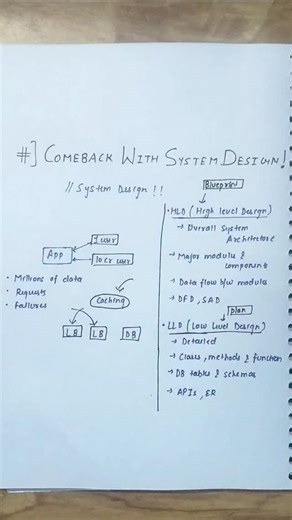 #] COMEBACK WITH SYSTEM DESIGN!
// System Design !!
App
1 user
10 cr user
• Millions of data
• Requests
• Failures
Caching
LB
LB
DB
Blueprint
• HLD (High level Design)
→ Overall System
Architecture
→ Major modules &
components
→ Data flow b/w modules
→ DFD, SAD
Plan
• LLD (Low Level Design)
→ Detailed
→ Classes, methods & function
→ DB tables & schemas
→ APIs, ER